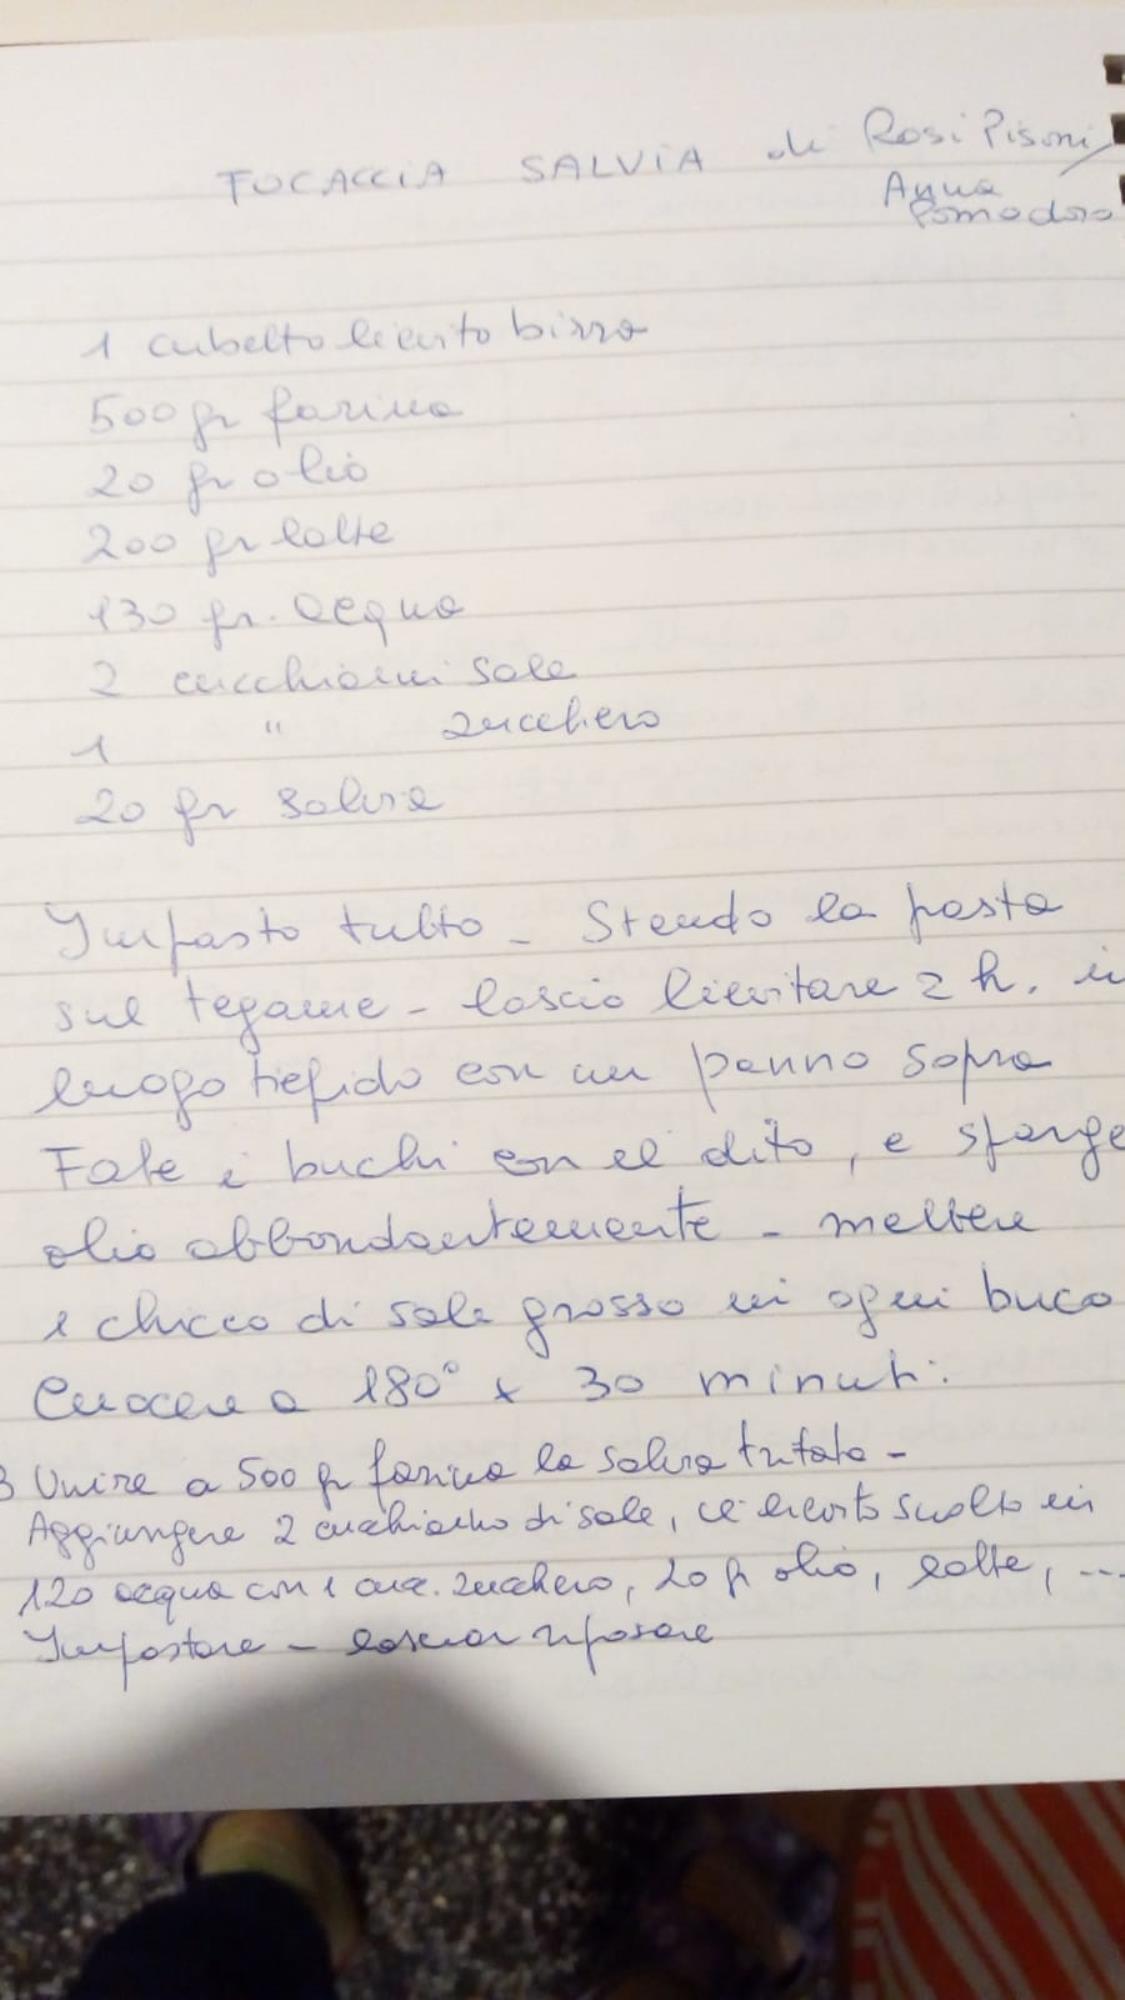 FOCACCIA SALVIA di Rosi Pisoni/
Anna
Pomodoro
1 cubetto lievito birra
500 gr farina
20 gr olio
200 gr latte
130 gr. acqua
2 cucchiaini sale
1 " zucchero
20 gr salvia
Impasto tutto - Stendo la pasta
sul tegame - lascio lievitare 2 h. in
luogo tiepido con un panno sopra
Fate i buchi con il dito, e sparge
olio abbondantemente - mettere
1 chicco di sale grosso in ogni buco
Cuocere a 180° x 30 minuti.
Unire a 500 gr farina la salvia tritata -
Aggiungere 2 cucchiaino di sale, il lievito sciolto in
120 acqua con 1 cucc. zucchero, 20 gr olio, latte, ...
Impastare - lasciar riposare